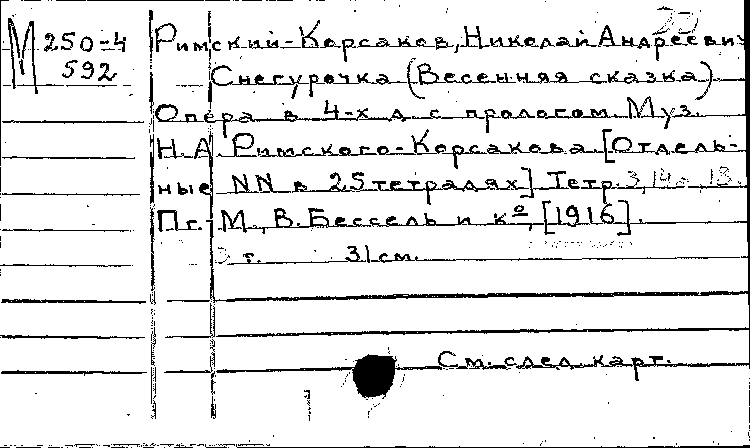 М 250-4
592
Римский-Корсаков, Николай Андреевич
Снегурочка (Весенняя сказка)
Опера в 4-х д. с прологом. Муз.
Н.А. Римского-Корсакова. [Отдель-
ные NN в 25 тетрадях] Тетр. 3, 14а, 18.
Пг.-М., В. Бессель и кº, [1916].
3 т. 31 см.
См. след. карт.